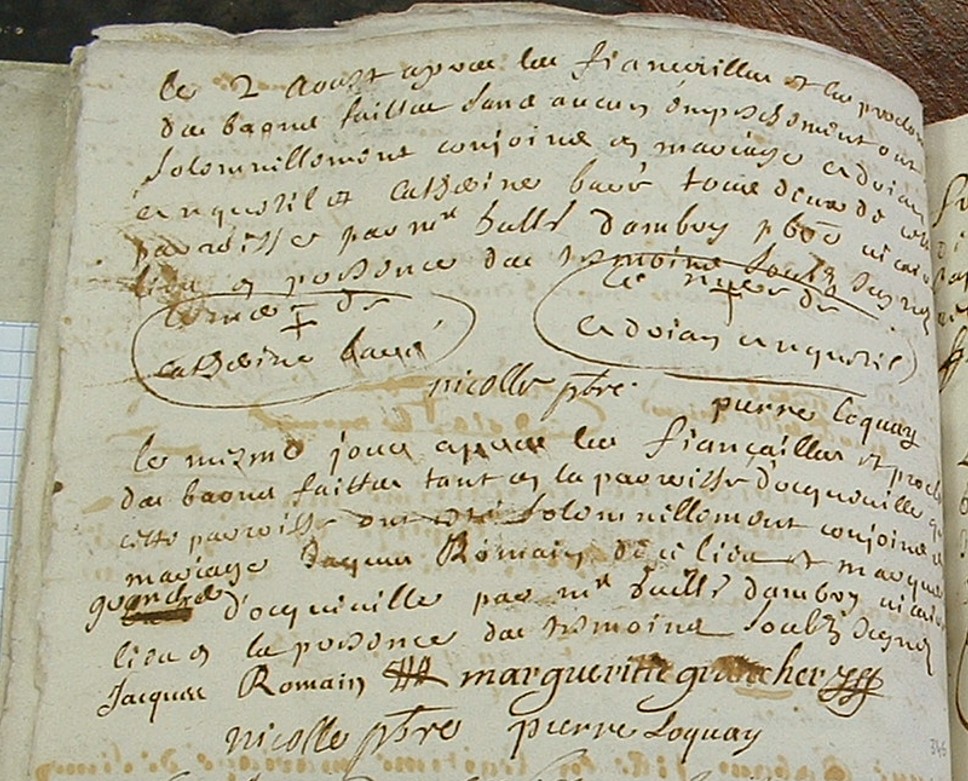 le 2 aoust apres les fiancailles et les proclam
des bagns faittes sans aucun empeschement ont
solemnellement conjoins en mariage adrian
anquetil et catherine tous deux de cette
parroisse par mr damboy pbre vicaire
lieu en presence des tesmoins soubz signes
marc de
catherine
le merc de
adrian anquetil
nicolle ptre
pierre Loquay
le mesme jour apres les fiançailles et procla
des bagns faittes tant en la parroisse d'ocqueville que
cette parroisse ont esté solemnellement conjoins en
mariage Jaques Romain de ce lieu et margue
d'ocqueville par mr damboy vicaire
lieu en la presence des tesmoins soubz signes
Jacques Romain margueritte grancher
nicolle ptre pierre Loquay
345